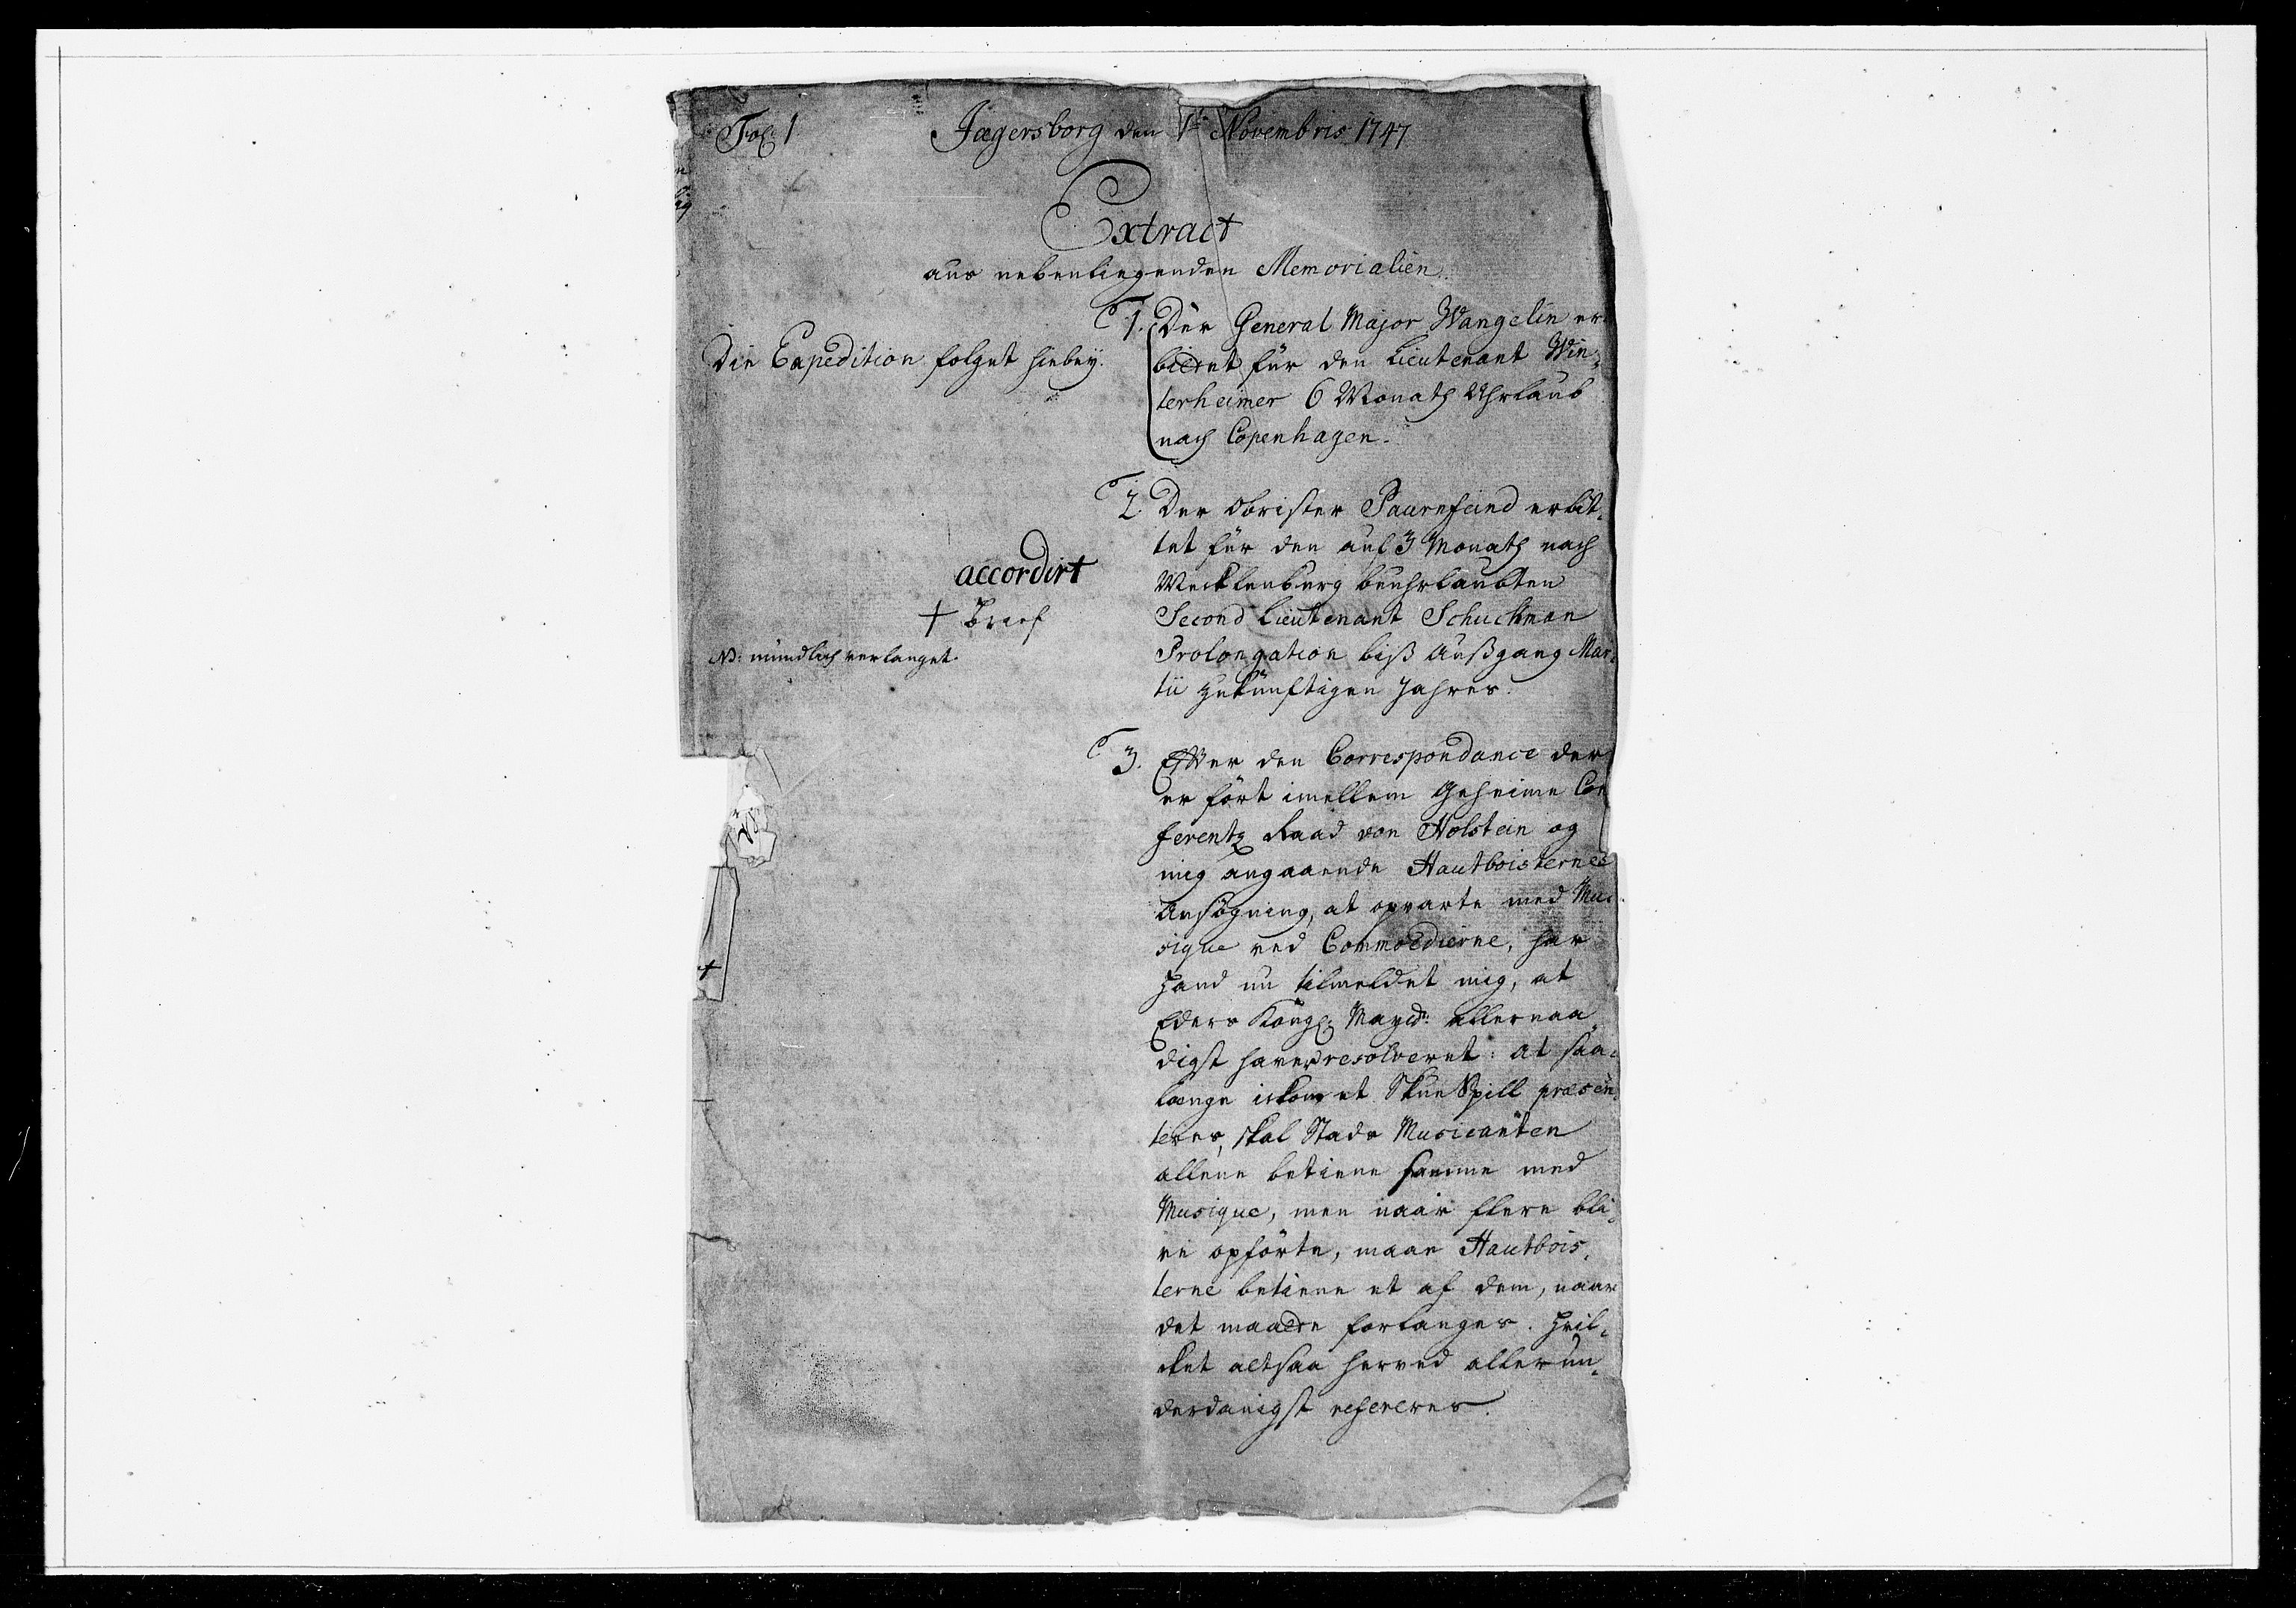 Fol: 1
Jægersborg den 1t Novembris 1747
Extract
aus nebenliegenden Memorialien.
1. Der General Major Wangelin er-
Die Expedition folget hiebey.
bietet für den Lieutenant Win-
terheimer 6 Monath Uhrlaub
nach Copenhagen.
2. Der Obrister Paurnfeind erbit-
tet für den auf 3 Monath nach
accordirt
Mecklenburg beuhrlaubten
+ Brief
Second Lieutenant Schuckman
NB: mündlich verlanget.
Prolongation biß Außgang Mar-
tii zukünftigen Jahres.
3. Efter den Correspondance der
er fört imellem Geheime Con
ferentz Raad von Holstein og
mig angaaende Hautboisternes
Ansögning, at opvarte med Mu-
sique ved Commoedierne, har
hand nu tilmeldet mig, at
Eders Kongl: Mayts: allernaa
digst haver resolveret: at saa-
længe ickun et Skue Spill præsen-
teres, skal Stads Musicanten
allene betiene samme med
Musique, men naar flere bli-
ve opförte, maae Hautbois-
terne betiene et af dem, naar
det maatte forlanges. Hvil-
cket altsaa herved allerun-
derdanigst refereres.